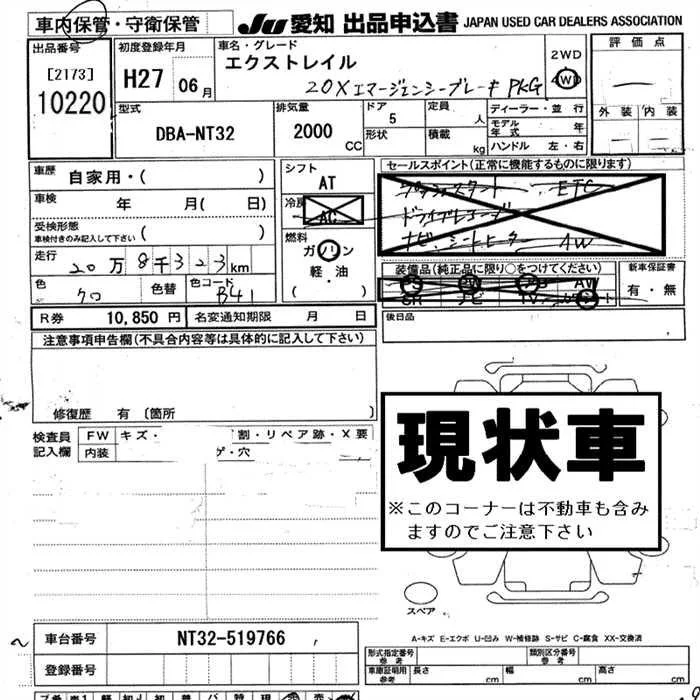 車内保管・守衛保管
JU 愛知 出品申込書 JAPAN USED CAR DEALERS ASSOCIATION
出品番号
[2173]
10220
初度登録年月
H27 06月
車名・グレード
エクストレイル
20X エマージェンシーブレーキ PKG
2WD
4WD
評価点
外装 内装
型式
DBA-NT32
排気量
2000 CC
ドア
5
形状
定員 人
積載 kg
ディーラー・並行
モデル年式 年
ハンドル 左・右
車歴 自家用・( )
車検 年 月( 日)
受検形態
車検付きのみ記入して下さい ( )
走行 20万8千323km
色 クロ 色替 色コード B41
シフト
AT
冷房
AC
燃料
ガソリン
軽・油
( )
セールスポイント(正常に機能するものに限ります)
プッシュスタート ETC
ドライブレコーダ
ナビ シートヒーター AW
装備品(純正品に限り○をつけてください)
PS PW AB AW
SR ナビ TV
新車保証書
有・無
R券 10,850 円 名変通知期限 月 日
後日品
注意事項申告欄(不具合内容等は具体的に記入して下さい)
修復歴 有 〔箇所 〕
検査員
記入欄
FW キズ・ 割・リペア跡・X要
内装 ゲ・穴
現状車
※このコーナーは不動車も含み
ますのでご注意下さい
スペア
A-キズ E-エクボ U-凹み W-補修跡 S-サビ C-腐食 XX-交換済
車台番号 NT32-519766
登録番号
形式指定番号
参考
類別区分番号
参考
車庫証明用
参考
長さ cm 幅 cm 高さ cm